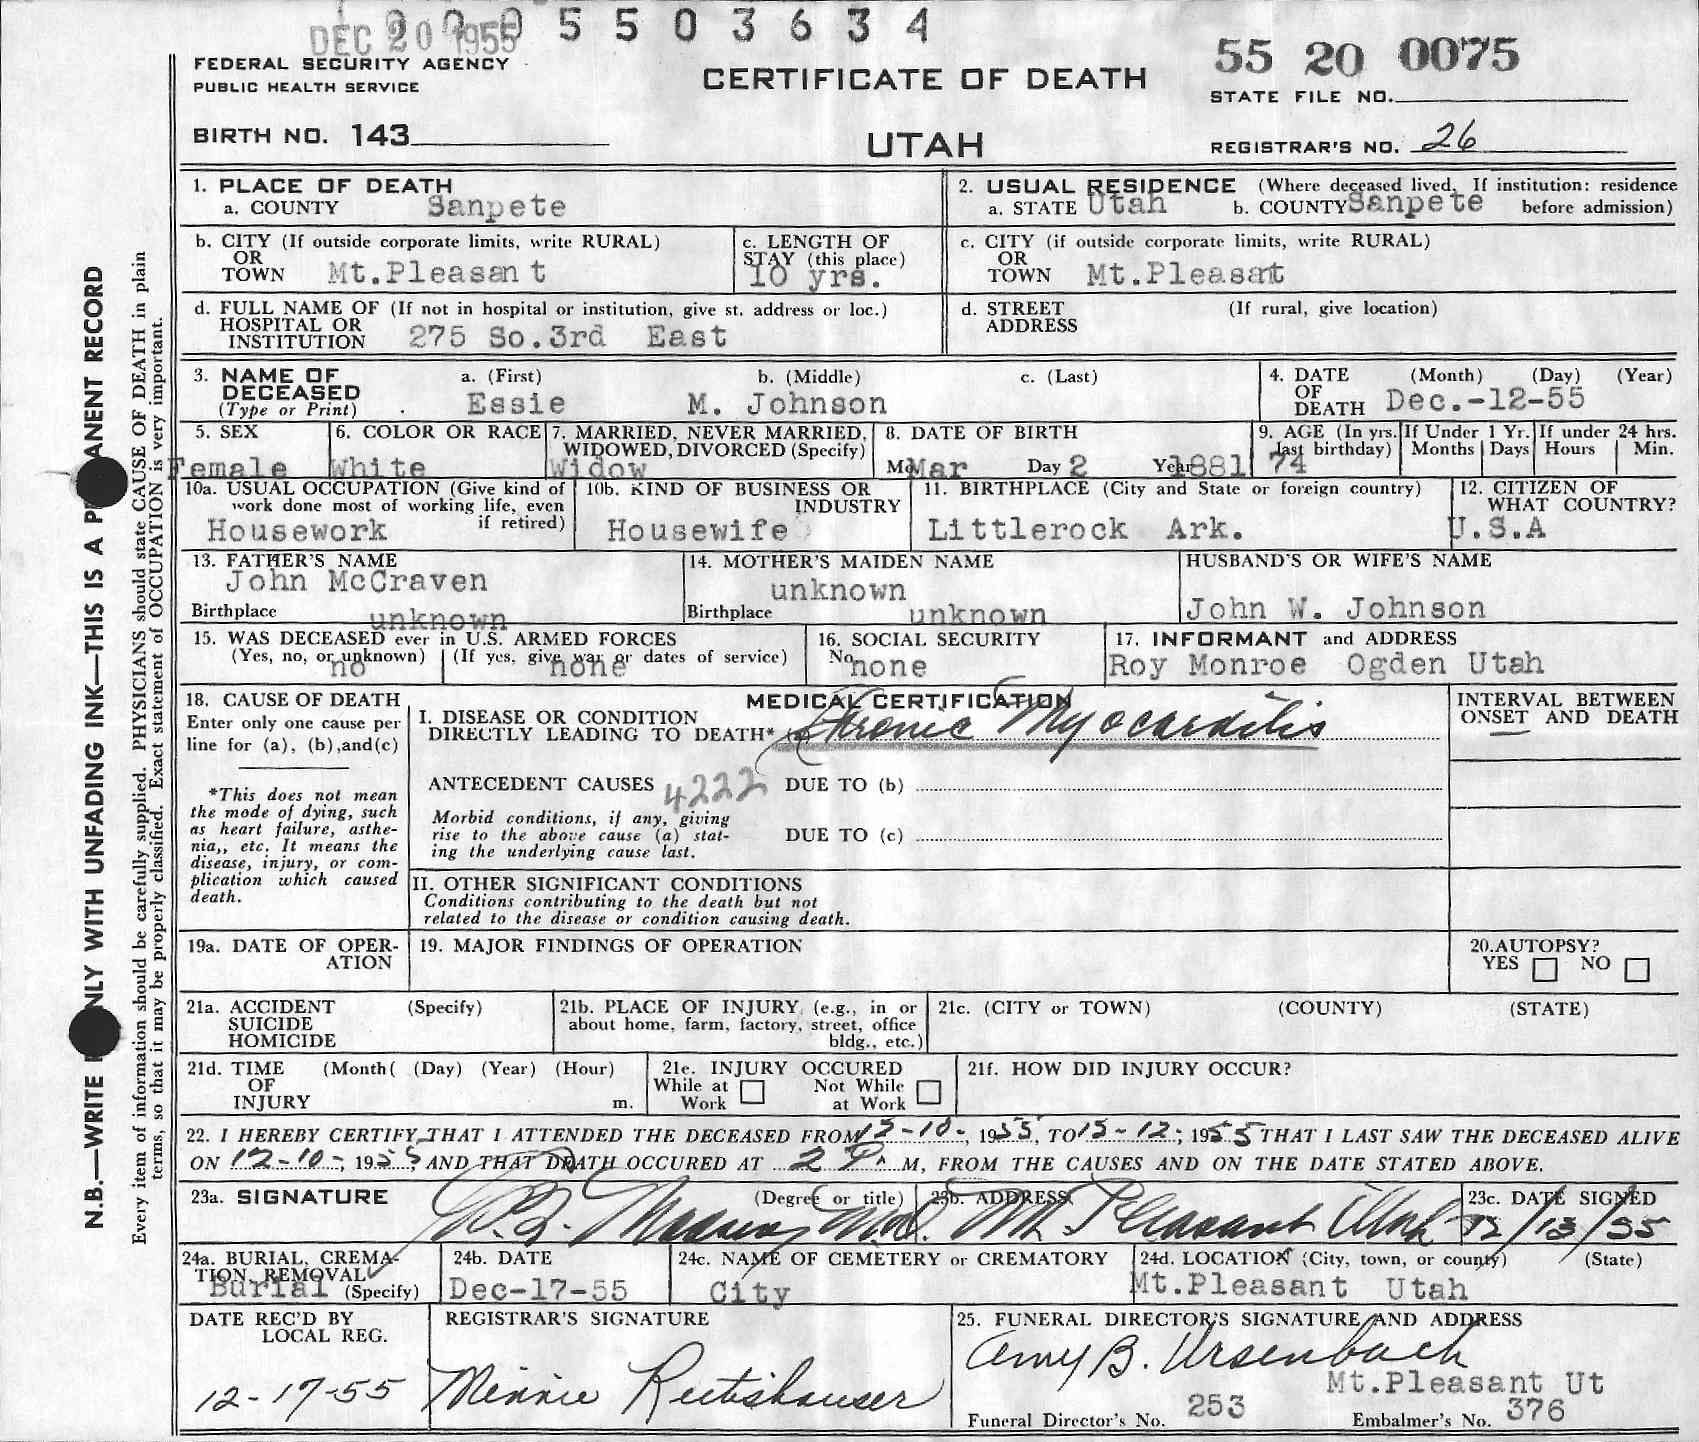 DEC 20 1955 5 5 0 3 6 3 4
55 20 0075
FEDERAL SECURITY AGENCY
PUBLIC HEALTH SERVICE
CERTIFICATE OF DEATH
STATE FILE NO.
BIRTH NO. 143
UTAH
REGISTRAR'S NO. 26
1. PLACE OF DEATH
a. COUNTY Sanpete
2. USUAL RESIDENCE (Where deceased lived. If institution: residence
a. STATE Utah b. COUNTY Sanpete before admission)
b. CITY (If outside corporate limits, write RURAL)
OR
TOWN Mt.Pleasant
c. LENGTH OF
STAY (this place)
10 yrs.
c. CITY (if outside corporate limits, write RURAL)
OR
TOWN Mt.Pleasat
d. FULL NAME OF (If not in hospital or institution, give st. address or loc.)
HOSPITAL OR
INSTITUTION 275 So.3rd East
d. STREET (If rural, give location)
ADDRESS
3. NAME OF a. (First) b. (Middle) c. (Last)
DECEASED
(Type or Print) Essie M. Johnson
4. DATE (Month) (Day) (Year)
OF
DEATH Dec.-12-55
5. SEX
Female
6. COLOR OR RACE
White
7. MARRIED, NEVER MARRIED,
WIDOWED, DIVORCED (Specify)
Widow
8. DATE OF BIRTH
Mo Mar Day 2 Year 1881
9. AGE (In yrs.
last birthday)
74
If Under 1 Yr.
Months Days
If under 24 hrs.
Hours Min.
10a. USUAL OCCUPATION (Give kind of
work done most of working life, even
if retired)
Housework
10b. KIND OF BUSINESS OR
INDUSTRY
Housewife
11. BIRTHPLACE (City and State or foreign country)
Littlerock Ark.
12. CITIZEN OF
WHAT COUNTRY?
U.S.A
13. FATHER'S NAME
John McCraven
Birthplace unknown
14. MOTHER'S MAIDEN NAME
unknown
Birthplace unknown
HUSBAND'S OR WIFE'S NAME
John W. Johnson
15. WAS DECEASED ever in U.S. ARMED FORCES
(Yes, no, or unknown) (If yes, give war or dates of service)
no none
16. SOCIAL SECURITY
No. none
17. INFORMANT and ADDRESS
Roy Monroe Ogden Utah
18. CAUSE OF DEATH
Enter only one cause per
line for (a), (b),and(c)
*This does not mean
the mode of dying, such
as heart failure, asthe-
nia,, etc. It means the
disease, injury, or com-
plication which caused
death.
MEDICAL CERTIFICATION
I. DISEASE OR CONDITION
DIRECTLY LEADING TO DEATH* (a) Chronic Myocarditis
ANTECEDENT CAUSES 4222 DUE TO (b)
Morbid conditions, if any, giving
rise to the above cause (a) stat-
ing the underlying cause last.
DUE TO (c)
II. OTHER SIGNIFICANT CONDITIONS
Conditions contributing to the death but not
related to the disease or condition causing death.
INTERVAL BETWEEN
ONSET AND DEATH
19a. DATE OF OPER-
ATION
19. MAJOR FINDINGS OF OPERATION
20.AUTOPSY?
YES NO
21a. ACCIDENT (Specify)
SUICIDE
HOMICIDE
21b. PLACE OF INJURY (e.g., in or
about home, farm, factory, street, office
bldg., etc.)
21c. (CITY or TOWN) (COUNTY) (STATE)
21d. TIME (Month( (Day) (Year) (Hour)
OF
INJURY m.
21e. INJURY OCCURED
While at Not While
Work at Work
21f. HOW DID INJURY OCCUR?
22. I HEREBY CERTIFY THAT I ATTENDED THE DECEASED FROM 12-10-, 1955, TO 12-12-, 1955 THAT I LAST SAW THE DECEASED ALIVE
ON 12-10-, 1955 AND THAT DEATH OCCURED AT 2 P. M, FROM THE CAUSES AND ON THE DATE STATED ABOVE.
23a. SIGNATURE (Degree or title)
M.D.
23b. ADDRESS
Mt Pleasant Utah
23c. DATE SIGNED
12/13/55
24a. BURIAL, CREMA-
TION, REMOVAL
Burial (Specify)
24b. DATE
Dec-17-55
24c. NAME OF CEMETERY or CREMATORY
City
24d. LOCATION (City, town, or county) (State)
Mt.Pleasant Utah
DATE REC'D BY
LOCAL REG.
12-17-55
REGISTRAR'S SIGNATURE
Minnie Reutshauser
25. FUNERAL DIRECTOR'S SIGNATURE AND ADDRESS
Amy B. Ursenbach
Mt.Pleasant Ut
Funeral Director's No. 253 Embalmer's No. 376
N.B.—WRITE ONLY WITH UNFADING INK—THIS IS A PERMANENT RECORD
Every item of information should be carefully supplied. PHYSICIANS should state CAUSE OF DEATH in plain
terms, so that it may be properly classified. Exact statement of OCCUPATION is very important.